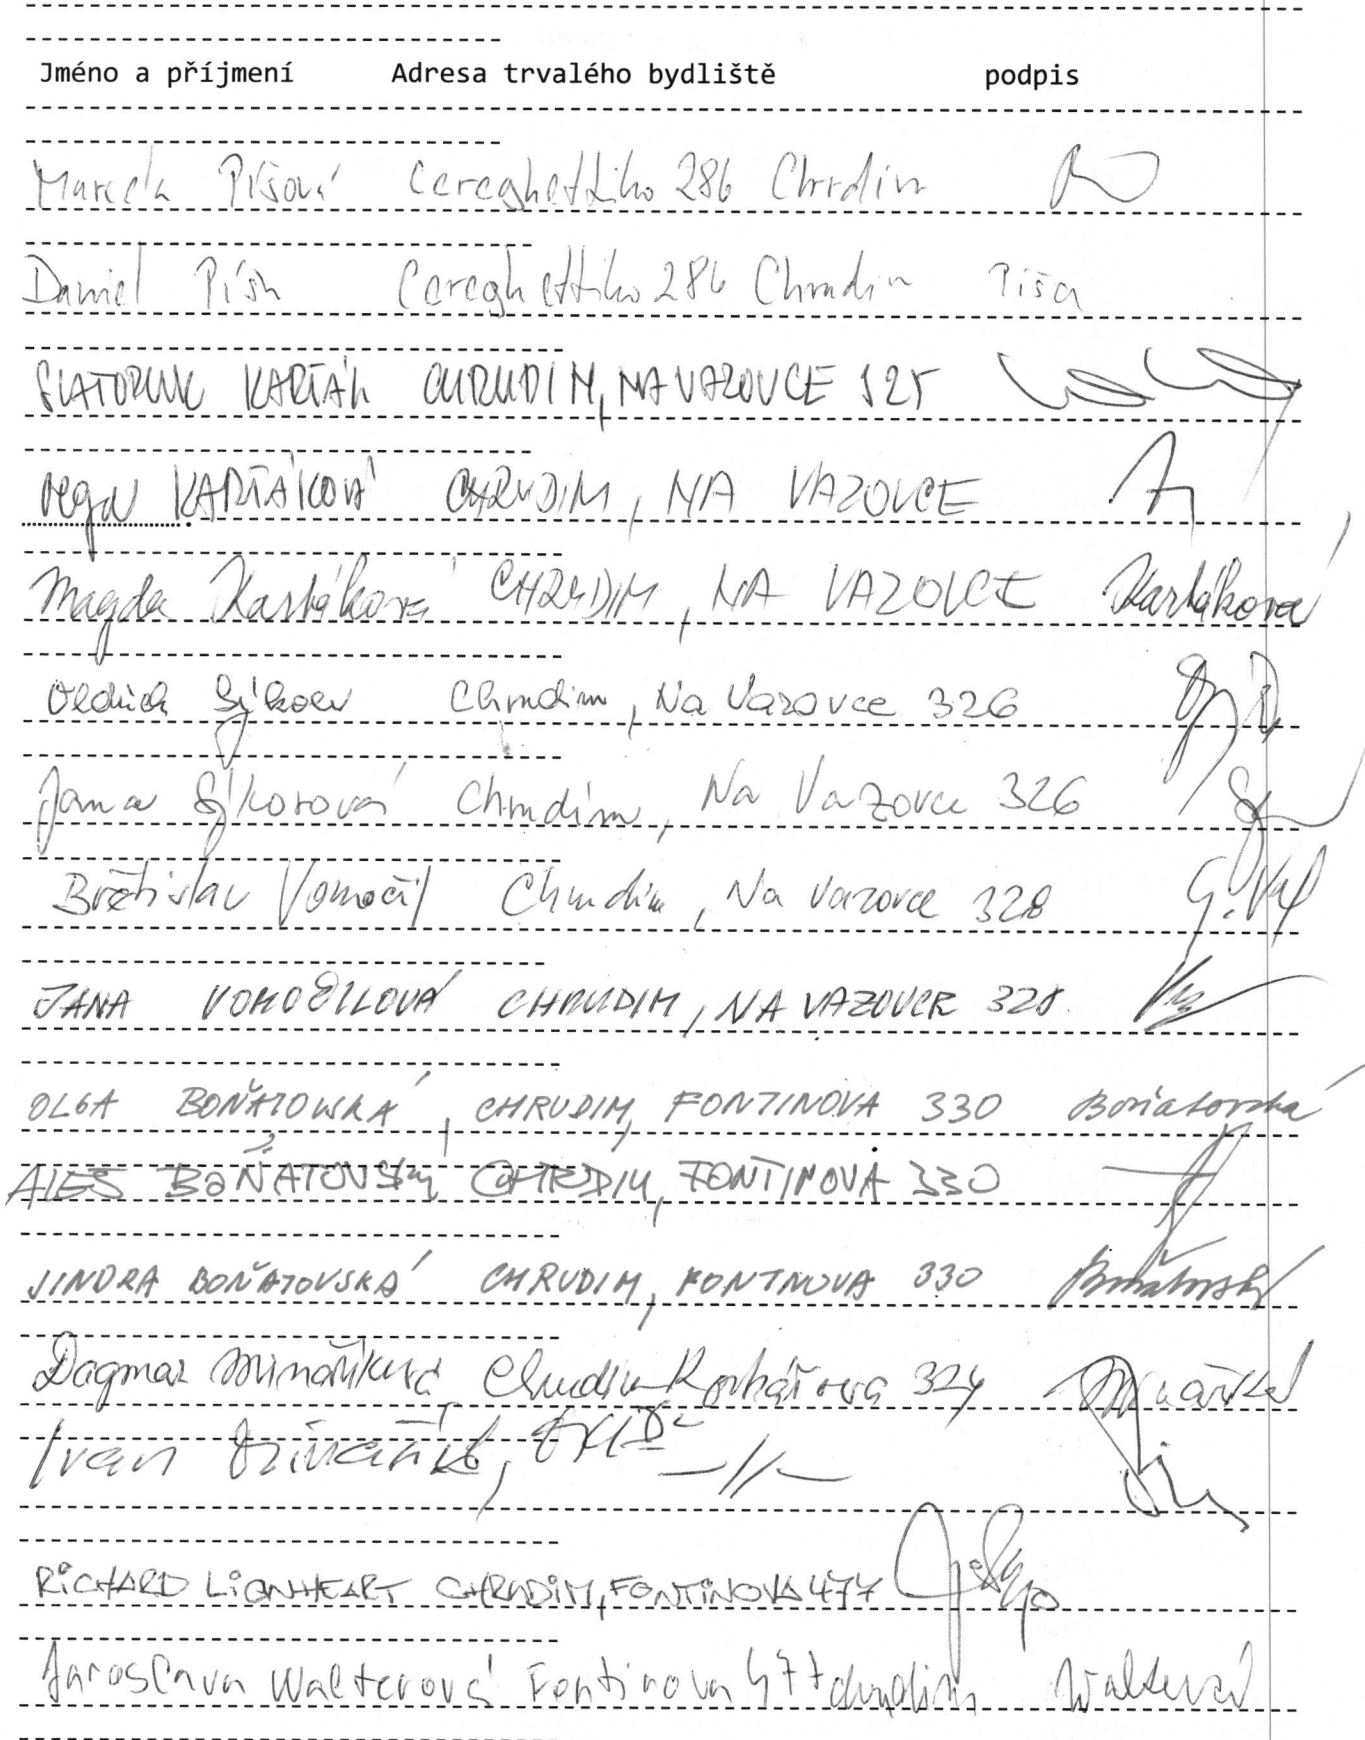 Jméno a příjmení Adresa trvalého bydliště podpis
Marcela Píšová Cereghettiho 286 Chrudim
Daniel Píša Cereghettiho 286 Chrudim Píša
KARTÁK CHRUDIM, NA VAZOVCE 325
KARTÁKOVÁ CHRUDIM, NA VAZOVCE
Magda Kartáková CHRUDIM, NA VAZOVCE Kartáková
Oldřich Sýkora Chrudim, Na Vazovce 326
Jana Sýkorová Chrudim, Na Vazovce 326
Břetislav Vomočil Chrudim, Na Vazovce 328
JANA VOMOČILOVÁ CHRUDIM, NA VAZOVCE 328
OLGA BOŇATOVSKÁ, CHRUDIM, FONTINOVA 330 Boňatovská
ALEŠ BOŇATOVSKÝ CHRUDIM, FONTINOVA 330
JINDRA BOŇATOVSKÁ CHRUDIM, FONTINOVA 330 Boňatovská
Dagmar Minaříková Chrudim 324
Ivan -//-
RICHARD LIONHEART CHRUDIM, FONTINOVA 477
Jaroslava Walterová Fontinova 477 Chrudim Walterová